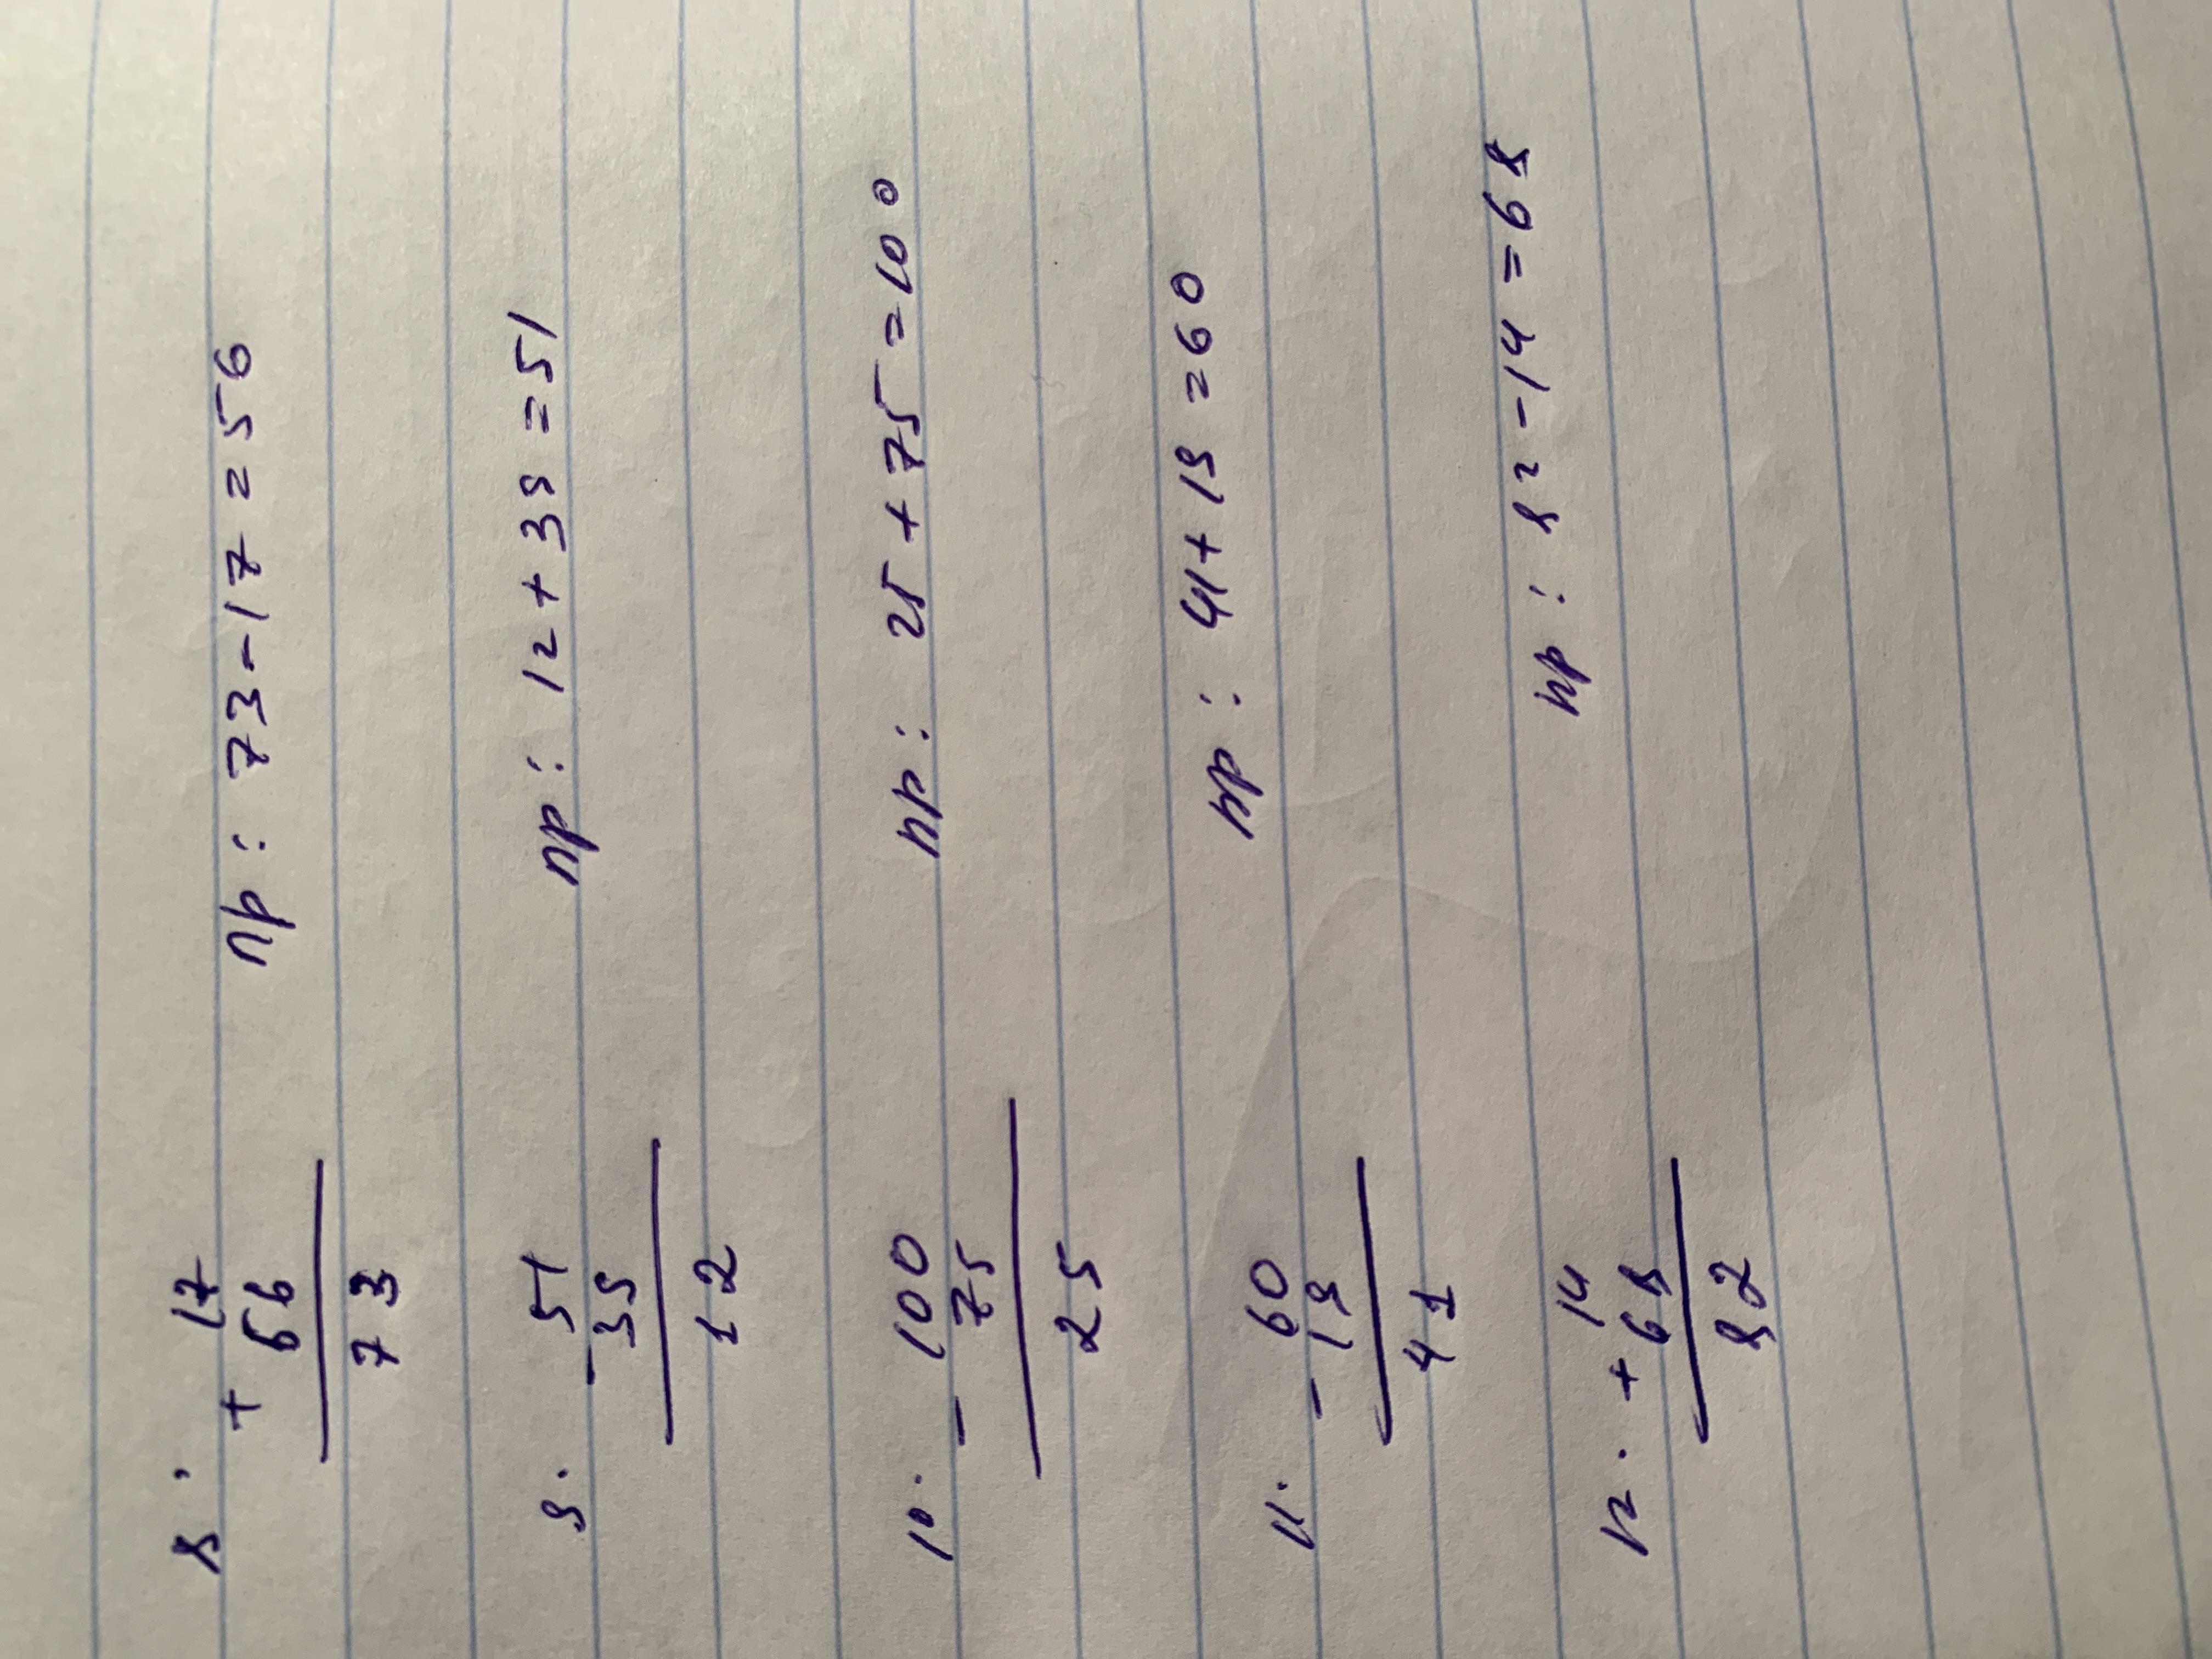 8. 17
+ 56
73
пр: 73-17=56
9. 51
- 39
12
пр: 12+39=51
10. 100
- 75
25
пр: 25+75=100
11. 60
- 19
41
пр: 41+19=60
12. 14
+ 68
82
пр: 82-14=68